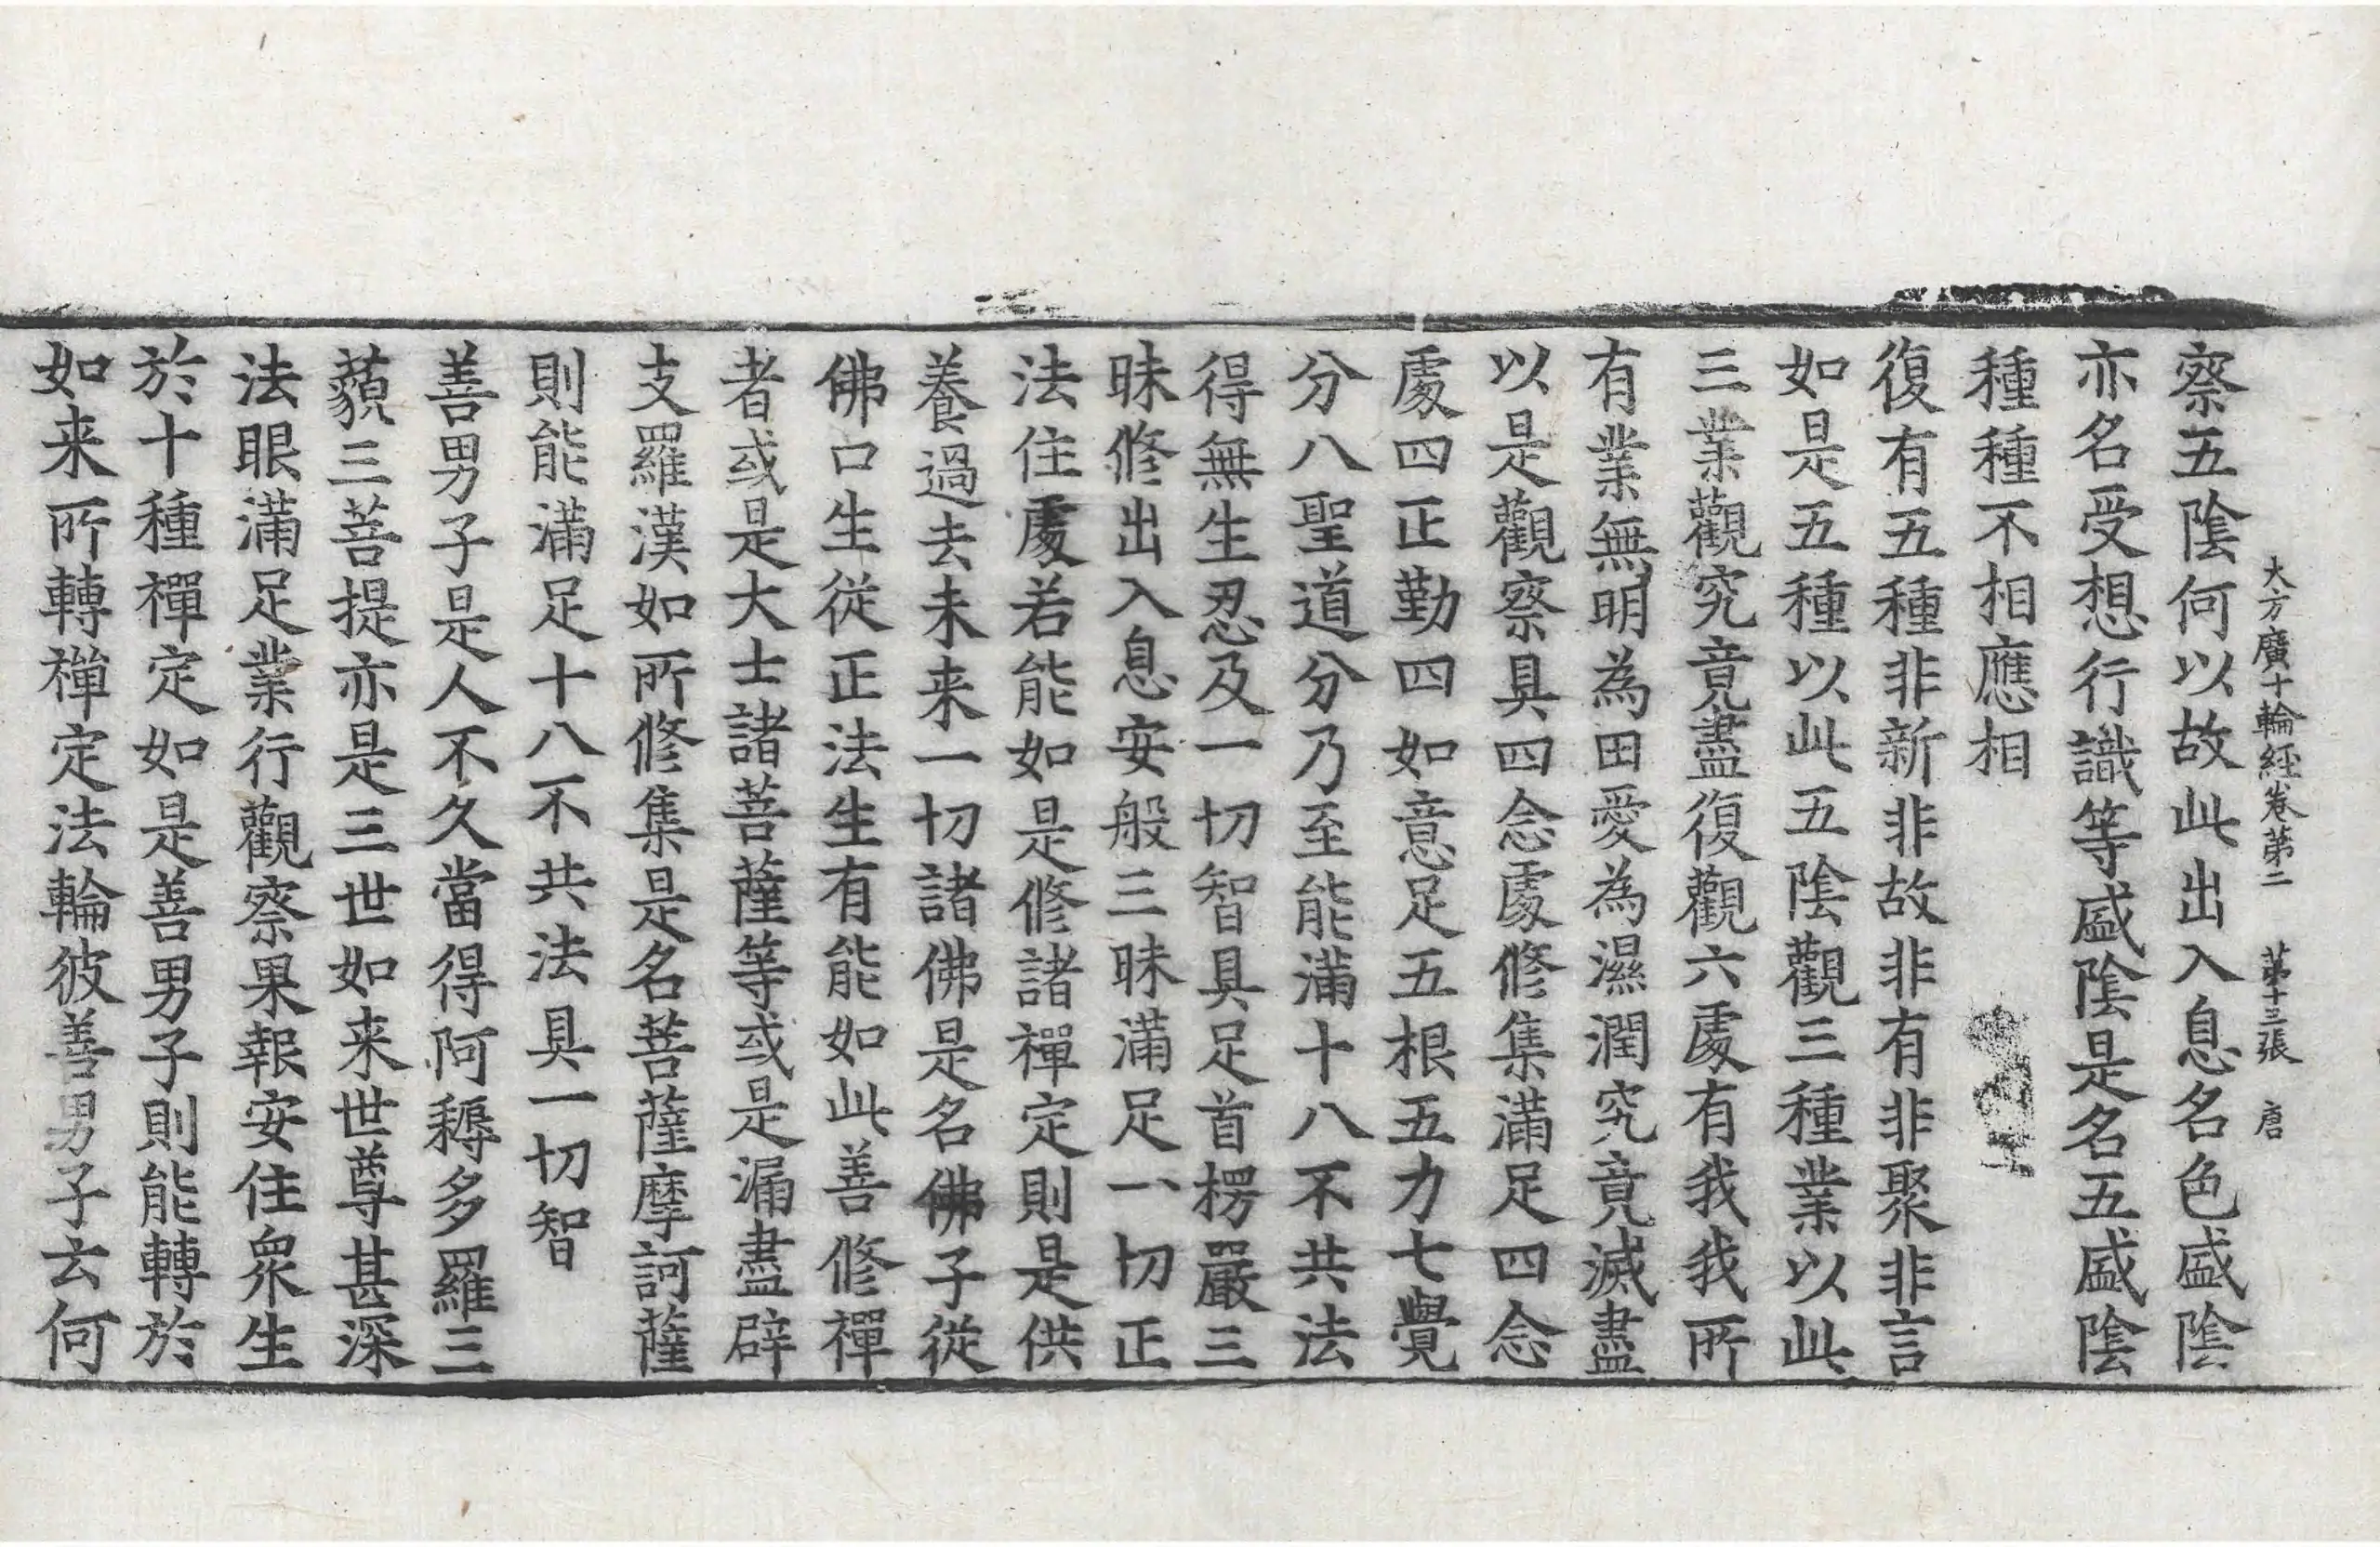 大方廣十輪經卷第二　第十三張　唐
察五陰何以故此出入息名色盛陰
亦名受想行識等盛陰是名五盛陰
種種不相應相
復有五種非新非故非有非聚非言
如是五種以此五陰觀三種業以此
三業觀究竟盡復觀六處有我我所
有業無明為田愛為濕潤究竟滅盡
以是觀察具四念處修集滿足四念
處四正勤四如意足五根五力七覺
分八聖道分乃至能滿十八不共法
得無生忍及一切智具足首楞嚴三
昧修出入息安般三昧滿足一切正
法住處若能如是修諸禪定則是供
養過去未来一切諸佛是名佛子從
佛口生從正法生有能如此善修禪
者或是大士諸菩薩等或是漏盡辟
支羅漢如所修集是名菩薩摩訶薩
則能滿足十八不共法具一切智
善男子是人不久當得阿耨多羅三
藐三菩提亦是三世如来世尊甚深
法眼滿足業行觀察果報安住眾生
於十種禪定如是善男子則能轉於
如来所轉禪定法輪彼善男子云何